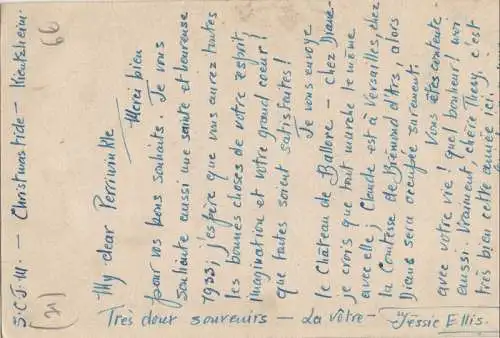 S.C.J.M. — Christmastide — Kientzheim.
(21)
66
My dear Perriwinkle
Merci bien
pour vos bons souhaits. Je vous
souhaite aussi une sainte et heureuse
1933; j'espère que vous aurez toutes
les bonnes choses de votre esprit,
imagination et votre grand coeur!
que toutes soient satisfaites!
Je vous envoye
le Château de Ballore — chez Diane—
je crois que tout marche le même
avec elle; Claude est à Versailles, chez
la Comtesse de Brémond d'Ars, alors
Diane sera occupée surement.
Vous êtes contente
avec votre vie! quel bonheur! moi
aussi. Vraiment, chère Theey, c'est
très bien cette année ici.
Très doux souvenirs — La vôtre — Jessie Ellis.